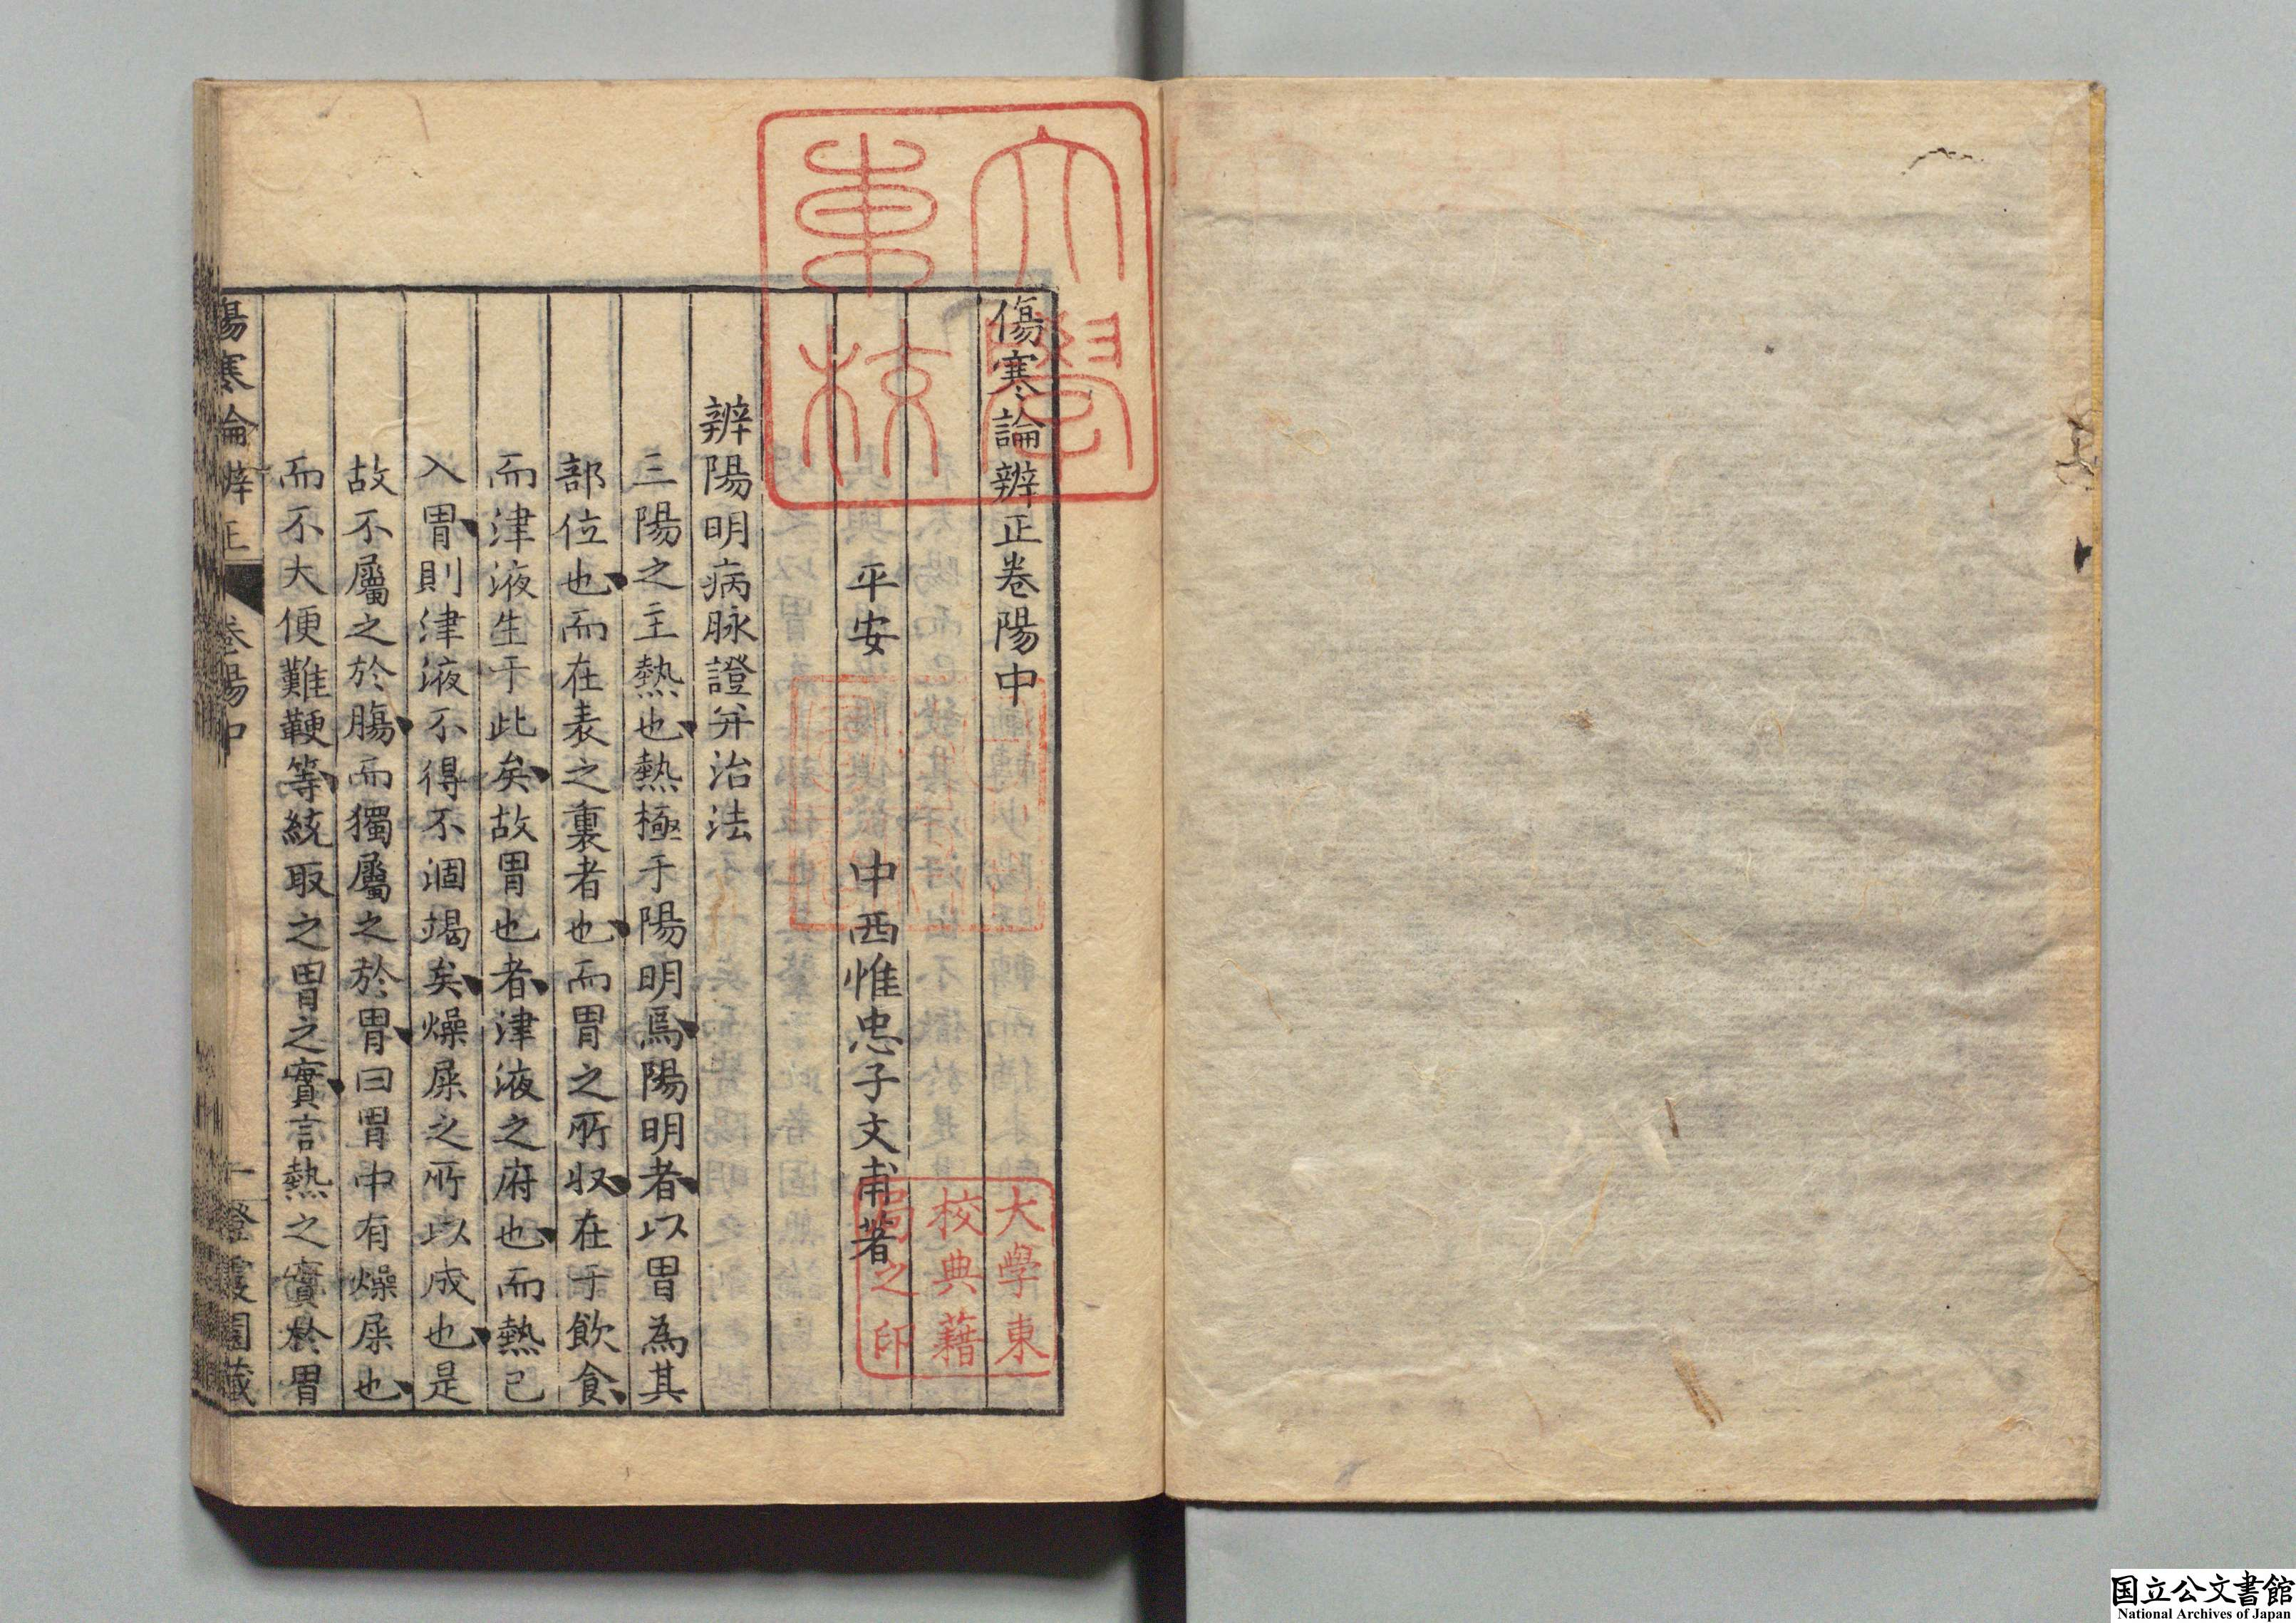 傷寒論辨正卷陽中
平安 中西惟忠子文甫著
辨陽明病脉證并治法
三陽之主熱也、熱極于陽明焉、陽明者、以胃為其
部位也、而在表之裏者也、而胃之所收、在于飲食、
而津液生于此矣、故胃也者、津液之府也、而熱已
入胃、則津液不得不涸竭矣、燥屎之所以成也、是
故不屬之於腸、而獨屬之於胃、曰胃中有燥屎也、
而不大便難鞕等、統取之胃之實、言熱之實於胃
傷寒論辨正 卷陽中 一 登霞園藏
大學東校
大學東校典藉局之印
国立公文書館
National Archives of Japan